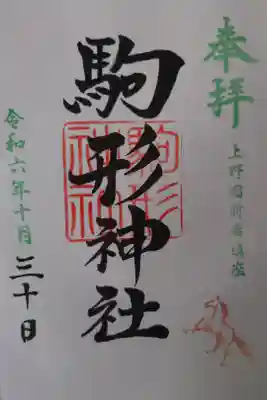 奉拝
上野國新田鎮座
駒形神社
駒形神社
令和六年十月三十日